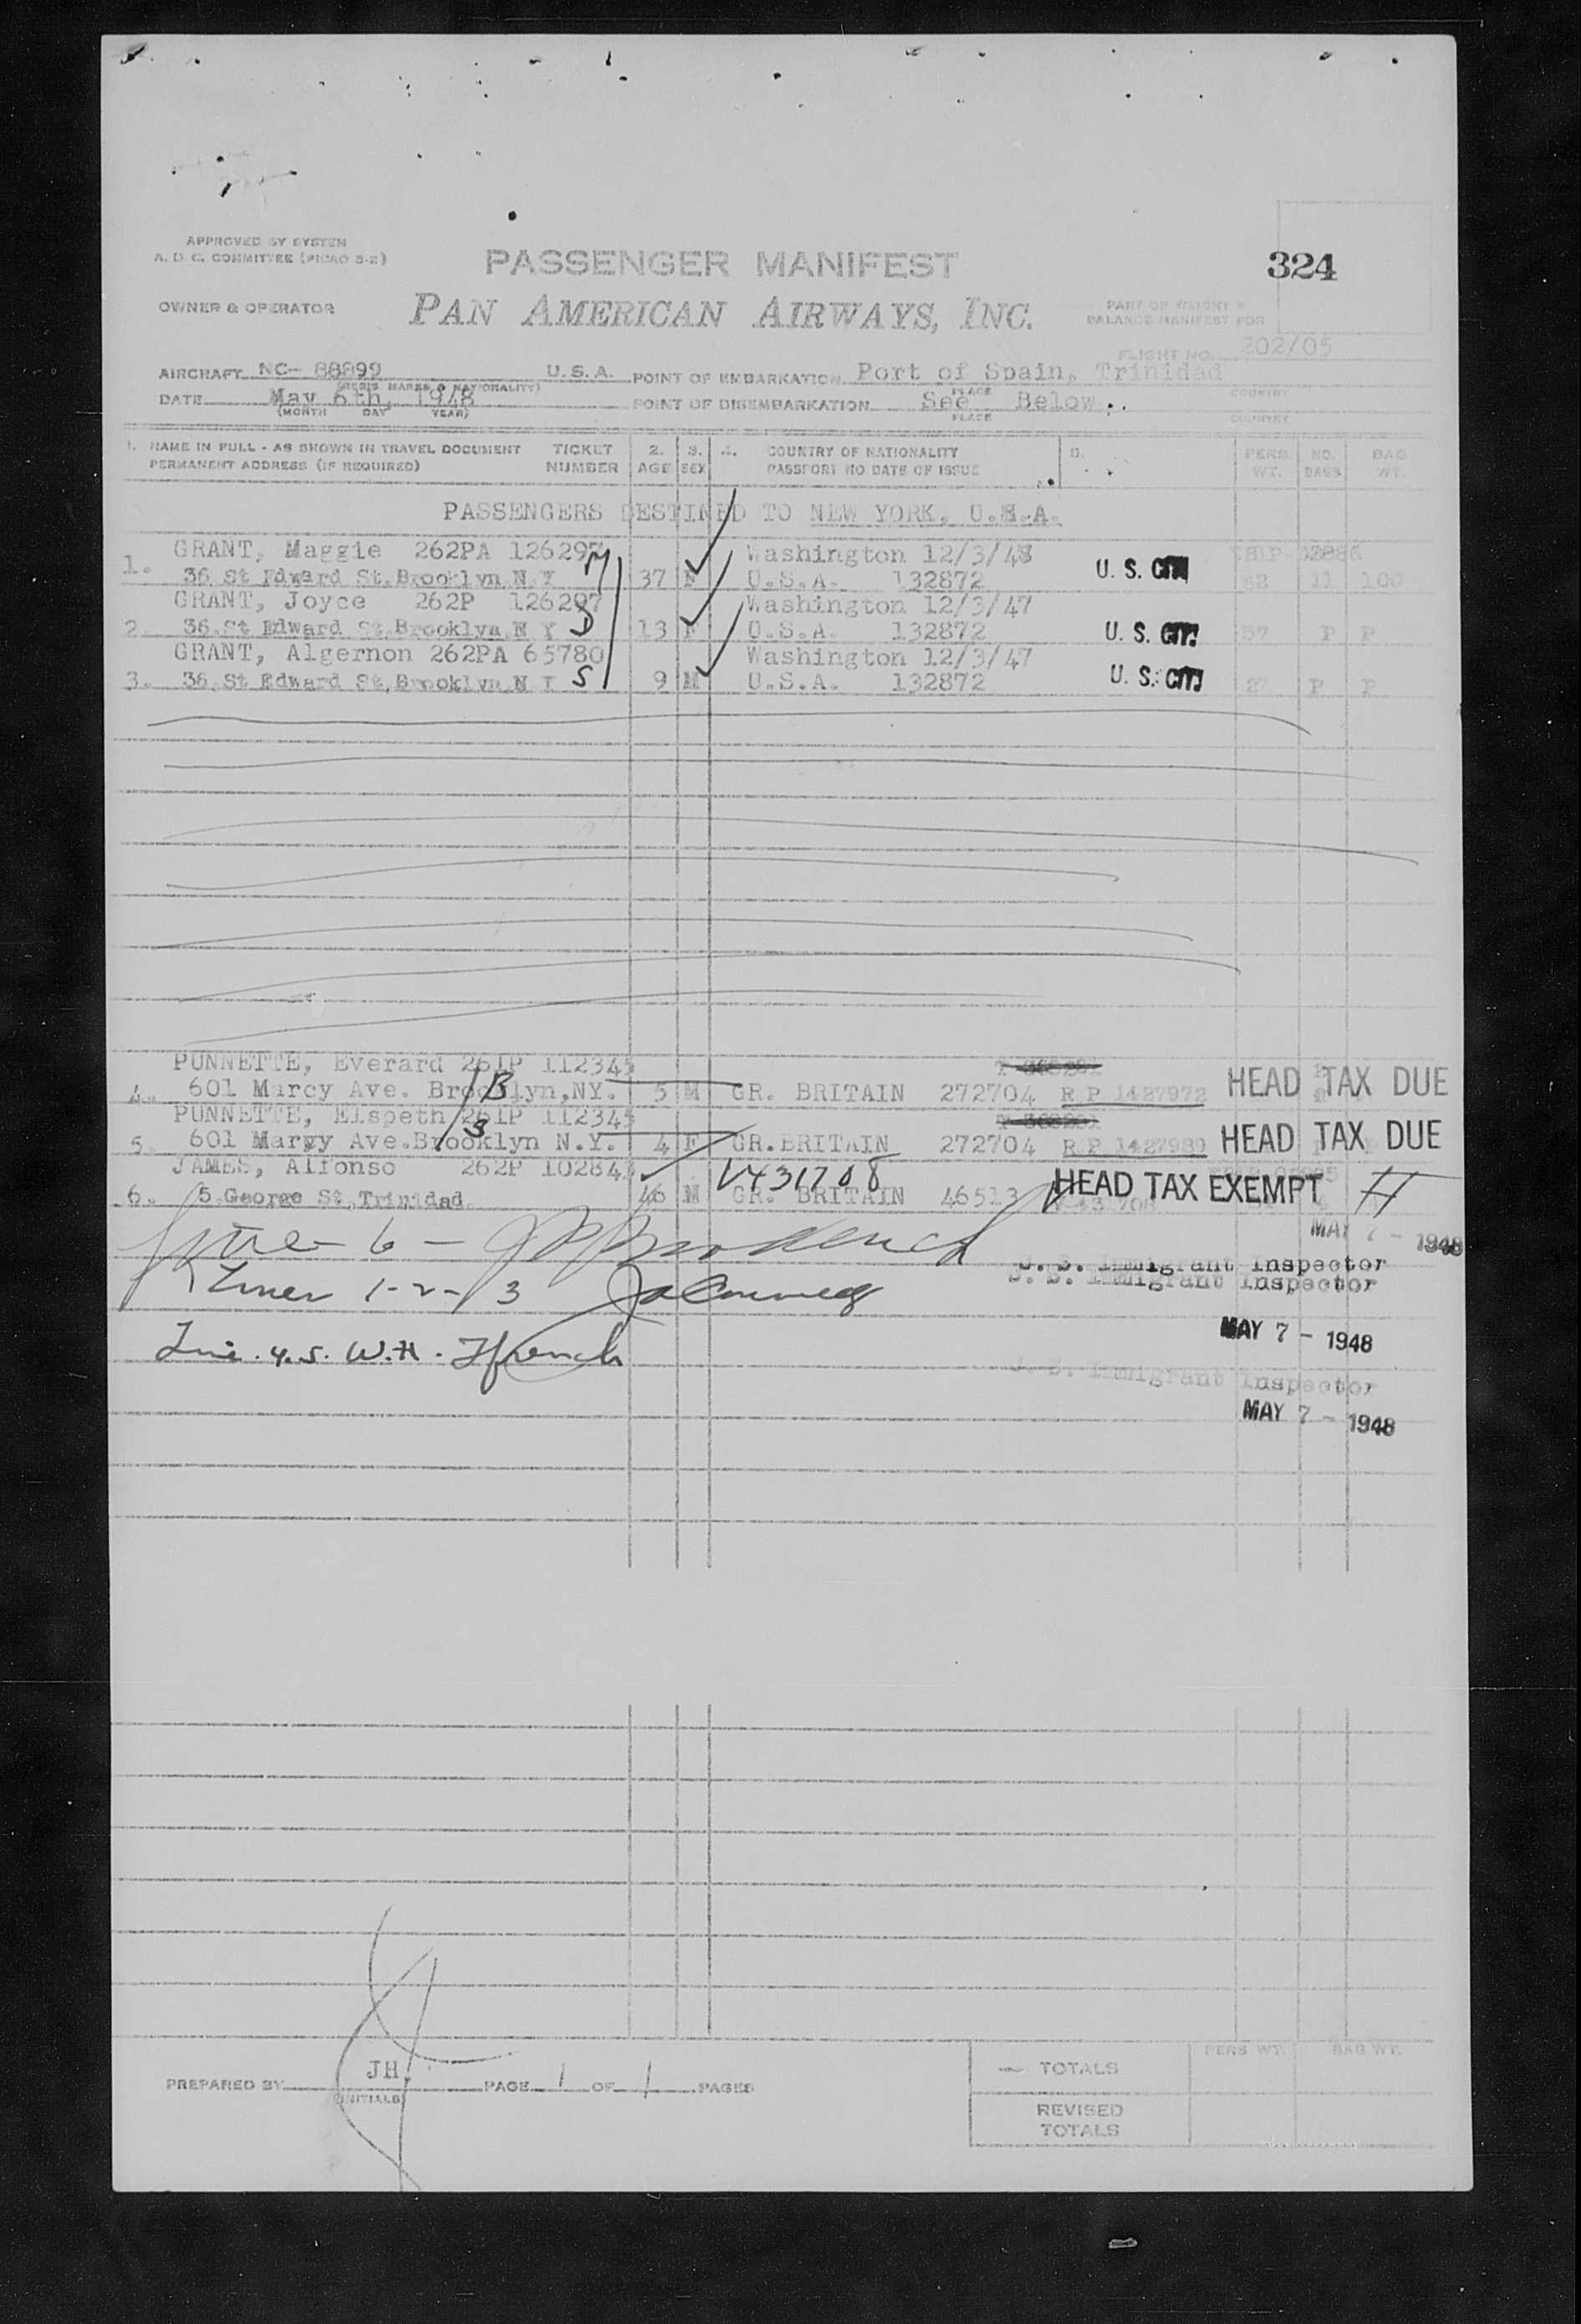 APPROVED BY SYSTEM
A. D. C. COMMITTEE (PICAO 3-2)
PASSENGER MANIFEST
324
OWNER & OPERATOR
PAN AMERICAN AIRWAYS, INC.
PART OF WEIGHT &
BALANCE MANIFEST FOR
FLIGHT NO. 202/05
AIRCRAFT NC- 88899 U.S.A. POINT OF EMBARKATION Port of Spain, Trinidad
(REGIS MARKS & NATIONALITY) PLACE COUNTRY
DATE May 6th, 1948 POINT OF DISEMBARKATION See Below
(MONTH DAY YEAR) PLACE COUNTRY
1. NAME IN FULL - AS SHOWN IN TRAVEL DOCUMENT TICKET 2. 3. 4. COUNTRY OF NATIONALITY 5. PERS. NO. BAG
PERMANENT ADDRESS (IF REQUIRED) NUMBER AGE SEX PASSPORT NO DATE OF ISSUE WT. BAGS WT.
PASSENGERS DESTINED TO NEW YORK, U.S.A.
GRANT, Maggie 262PA 126297 M Washington 12/3/48
1. 36 St Edward St. Brooklyn N Y 37 F U.S.A. 132872 U. S. CIT. 11 100
GRANT, Joyce 262P 126297 Washington 12/3/47
2. 36 St Edward St. Brooklyn N Y D 13 F U.S.A. 132872 U. S. CIT. 57 P P
GRANT, Algernon 262PA 65780 Washington 12/3/47
3. 36 St Edward St. Brooklyn N Y S 9 M U.S.A. 132872 U. S. CIT. P P
PUNNETTE, Everard 261P 112345
4. 601 Marcy Ave. Brooklyn,NY. B 5 M GR. BRITAIN 272704 R P 1427972 HEAD TAX DUE
PUNNETTE, Elspeth 261P 112345
5. 601 Marcy Ave.Brooklyn N.Y. S 4 F GR.BRITAIN 272704 R P 1427989 HEAD TAX DUE
JAMES, Alfonso 262P 102843 V431708
6. 5 George St,Trinidad 46 M GR. BRITAIN 46513 HEAD TAX EXEMPT H
MAY 7 - 1948
6 -
U. S. Immigrant Inspector
U. S. Immigrant Inspector
Lines 1-2-3
MAY 7 - 1948
Line. 4.5. W.H. French
U. S. Immigrant Inspector
MAY 7 - 1948
PREPARED BY JH. PAGE 1 OF 1 PAGES
(INITIALS)
PERS WT. BAG WT.
TOTALS
REVISED
TOTALS